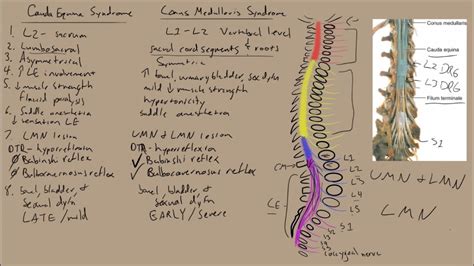 Cauda Equina Syndrome
1. L2- sacrum
2. Lumbosacral
3. Asymmetrical
4. ↑ LE involvement
5. ↓ muscle strength
flaccid paralysis
6. Saddle anesthesia
& sensation LE
7. LMN lesion
DTR-hyporeflexion
Babinski reflex
Bulbocavernosus reflex
8. Bowel, bladder, &
sexual dyfn
LATE/mild
Conus Medullaris Syndrome
L1-L2 Vertebral level
sacral cord segments & roots
Symmetric
↑ bowel, urinary bladder, sex dysfn
mild ↓ muscle strength
hypertonicity
Saddle anesthesia
UMN & LMN lesion
DTR - hyperreflexion
Babinski reflex
Bulbocavernosus reflex
bowel, bladder, &
Sexual dyfn
EARLY/Severe
CM
LE
L1
L2
L3
L4
L5
coccygeal nerve
Conus medullaris
Cauda equina
L2 DRG
L3 DRG
Filum terminale
S1
UMN & LMN
LMN